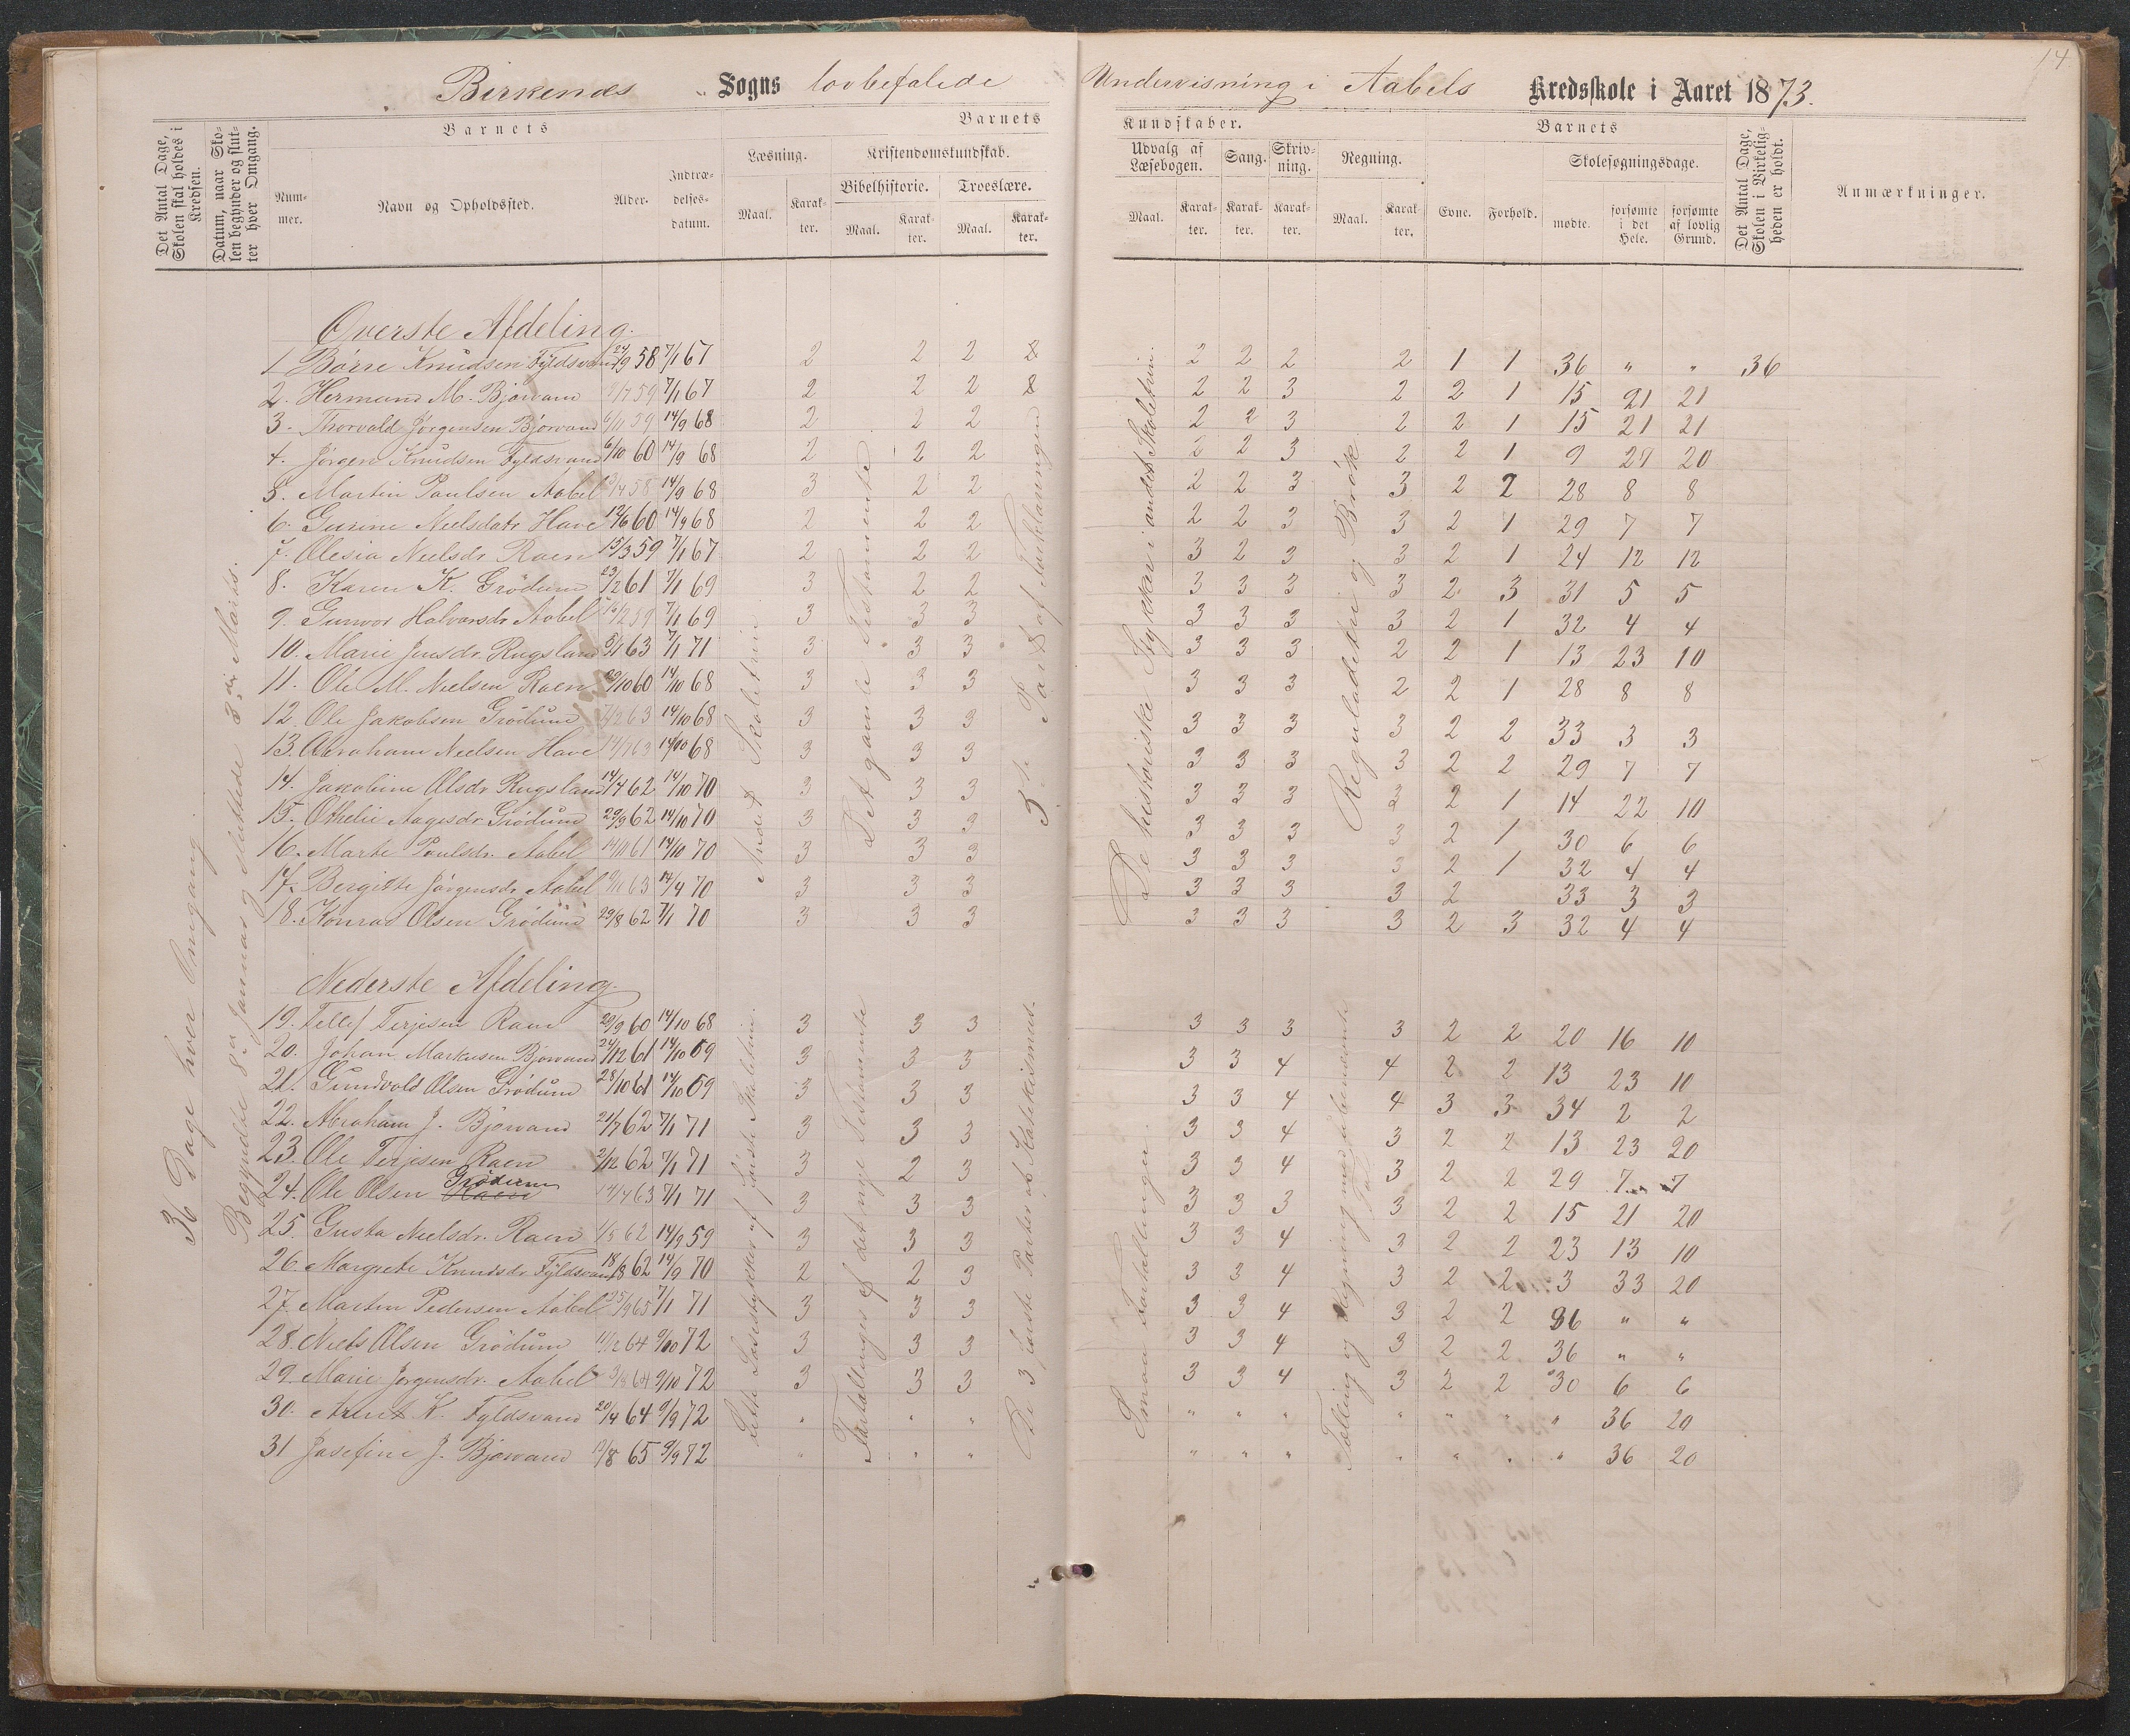 14
Birkenæs Sogns lovbefalede Undervisning i Aabels Kredsskole i Aaret 1873.
Det Antal Dage, Skolen skal holdes i Kredsen.
Datum, naar Skolen begynder og slutter hver Omgang.
Barnets
Nummer.
Navn og Opholdssted.
Alder.
Indtrædelsesdatum.
Barnets Kundskaber.
Læsning.
Maal. Karakter.
Kristendomskundskab.
Bibelhistorie. Troeslære.
Maal. Karakter. Maal. Karakter.
Udvalg af Læsebogen.
Maal. Karakter.
Sang. Karakter.
Skrivning. Karakter.
Regning.
Maal. Karakter.
Barnets
Evne. Forhold.
Skolesøgningsdage.
mødte. forsømte i det Hele. forsømte af lovlig Grund.
Det Antal Dage, Skolen i Virkeligheden er holdt.
Anmærkninger.
36 Dage hver Omgang.
Begyndte 8de Januar og sluttede 3die Marts.
Øverste Afdeling.
Andet Skoletrin
Det gamle Testamente
3die Part af Forklaringen
De historiske Stykker i andet Skoletrin.
Reguladetri og Brøk
1 Börre Knudsen Fyldsvand 24/9 58 7/1 67 2 2 2 2 2 2 2 1 1 36 " " 36
2. Hermund M. Bjorvand 59 7/1 67 2 2 2 2 2 3 2 2 1 15 21 21
3. Thorvald Jørgensen Bjørvand 6/11 59 14/9 68 2 2 2 2 2 3 2 2 1 15 21 21
4. Jörgen Knudsen Fyldsvand 6/10 60 14/9 68 2 2 2 2 2 3 2 2 1 9 27 20
5. Martin Paulsen Aabel 58 14/9 68 3 2 2 2 2 3 3 2 2 28 8 8
6. Gurine Neelsdatr Have 12/6 60 14/9 68 2 2 2 2 2 3 3 2 1 29 7 7
7. Olesia Neelsdr Raen 15/3 59 7/1 67 2 2 2 3 2 3 3 2 1 24 12 12
8. Karen K. Grödum 23/12 61 7/1 69 3 2 2 3 3 3 3 2 3 31 5 5
9. Gunvor Halvorsdr Aabel 59 7/1 69 3 3 3 3 3 3 3 2 1 32 4 4
10. Marie Jensdr. Rugsland 63 7/1 71 3 3 3 3 3 3 2 2 1 13 23 10
11. Ole M. Nielsen Raen 10 60 14/10 68 3 3 3 3 3 3 2 2 1 28 8 8
12. Ole Jakobsen Grödum 63 14/10 68 3 3 3 3 3 3 3 2 2 33 3 3
13. Abraham Neelsen Have 63 14/10 68 3 3 3 3 3 3 3 2 2 29 7 7
14. Jakobine Olsdr Rugsland 14/4 62 14/10 70 3 3 3 3 3 3 3 2 1 14 22 10
15. Othelie Aagesdr. Grödum 29/9 62 14/10 70 3 3 3 3 3 3 3 2 1 30 6 6
16. Marte Poulsdr. Aabel 61 14/10 70 3 3 3 3 3 3 3 2 1 32 4 4
17. Bergitte Jörgensdr Aabel 63 14/4 70 3 3 3 3 3 3 3 2 33 3 3
18. Konrad Olsen Grödum 29/8 62 7/1 70 3 3 3 3 3 3 3 2 3 32 4 4
Nederste Afdeling.
Lette Læsestykker af første Skoletrin.
Fortællinger af det nye Testamente
De 3 første Parter af Katekismus.
Smaa Fortællinger.
Tælling og Regning med ubenævnte Tal
19. Tellef Terjesen Raen 29/9 60 14/10 68 3 3 3 3 3 3 3 2 2 20 16 10
20. Johan Markusen Bjorvand 24/12 61 14/10 69 3 3 3 3 3 4 4 2 2 13 23 10
21. Gundvold Olsen Grödum 28/10 61 14/10 69 3 3 3 3 3 4 4 3 3 34 2 2
22. Abraham J. Bjorvand 21/7 62 7/1 71 3 3 3 3 3 4 3 2 2 13 23 20
23. Ole Terjesen Raen 2/12 62 7/1 71 3 2 3 3 3 4 3 2 2 29 7 7
24. Ole Olsen Raen Grödum 14/4 63 7/1 71 3 3 3 3 3 3 3 2 2 15 21 20
25. Gusta Neelsdr. Raen 62 14/9 59 3 3 3 3 3 4 3 2 2 23 13 10
26. Margrete Knudsdr Fyldsvand 18/8 62 14/9 70 2 2 3 3 3 4 3 2 2 3 33 20
27. Martin Pedersen Aabel 25/9 65 7/1 71 3 3 3 3 3 4 3 2 2 36 " "
28. Niels Olsen Grödum 11/12 64 9/10 72 3 3 3 3 3 4 3 2 2 36 " "
29. Marie Jørgensdr. Aabel 64 9/10 72 3 3 3 3 3 4 3 2 2 30 6 6
30. Arent K. Fyldsvand 20/4 64 9/9 72 " " " " " " " " " " 36 20
31 Josefine J. Bjorvand 12/8 65 9/9 72 " " " " " " " " " " 36 20